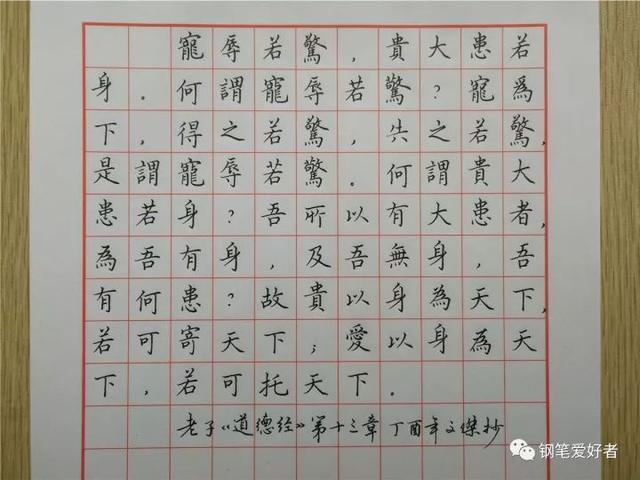 寵辱若驚，貴大患若
身．何謂寵辱若驚？寵爲
下，得之若驚，失之若驚，
是謂寵辱若驚．何謂貴大
患若身？吾所以有大患者，
為吾有身，及吾無身，吾
有何患？故貴以身為天下，
若可寄天下；愛以身為天
下，若可托天下．
老子《道德经》第十三章 丁酉年文傑抄
钢笔爱好者